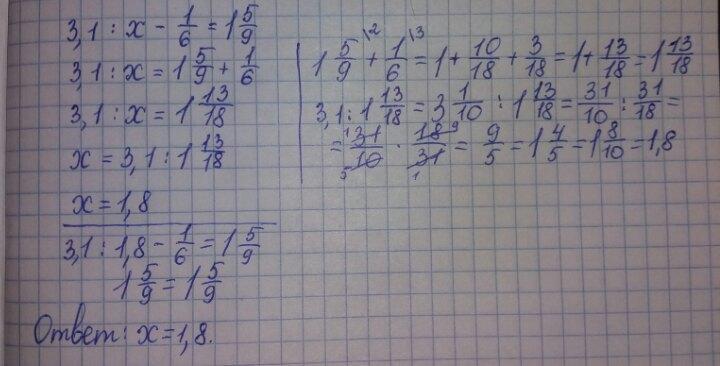 3,1 : x - 1/6 = 1 5/9
3,1 : x = 1 5/9 + 1/6
3,1 : x = 1 13/18
x = 3,1 : 1 13/18
x = 1,8
3,1 : 1,8 - 1/6 = 1 5/9
1 5/9 = 1 5/9
Ответ: x = 1,8.
1 5/9 \2 + 1/6 \3 = 1 + 10/18 + 3/18 = 1 + 13/18 = 1 13/18
3,1 : 1 13/18 = 3 1/10 : 1 13/18 = 31/10 : 31/18 =
= 31/10 · 18/31 = 9/5 = 1 4/5 = 1 8/10 = 1,8